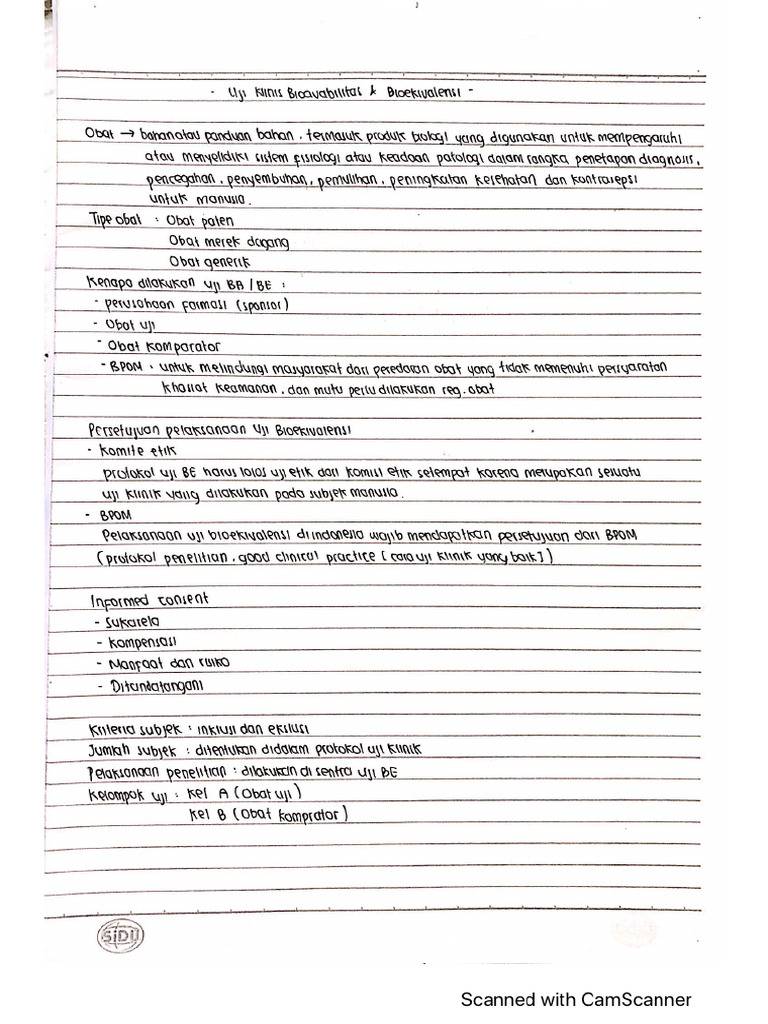 - Uji Klinis Bioavabilitas & Bioekivalensi -
Obat → bahan atau panduan bahan, termasuk produk biologi yang digunakan untuk mempengaruhi
atau menyelidiki sistem fisiologi atau keadaan patologi dalam rangka penetapan diagnosis,
pencegahan, penyembuhan, pemulihan, peningkatan kesehatan dan kontrasepsi
untuk manusia.
Tipe obat : Obat paten
Obat merek dagang
Obat generik
Kenapa dilakukan uji BA/BE :
- perusahaan farmasi (sponsor)
- Obat uji
- Obat komparator
- BPOM : untuk melindungi masyarakat dari peredaran obat yang tidak memenuhi persyaratan
khasiat keamanan, dan mutu perlu dilakukan reg. obat
Persetujuan pelaksanaan Uji Bioekivalensi
- Komite etik
protokol uji BE harus lolos uji etik dari komisi etik setempat karena merupakan sesuatu
uji klinik yang dilakukan pada subjek manusia.
- BPOM
Pelaksanaan uji bioekivalensi di indonesia wajib mendapatkan persetujuan dari BPOM
(protokol penelitian, good clinical practice [cara uji klinik yang baik])
Informed consent
- Sukarela
- Kompensasi
- Manfaat dan risiko
- Ditandatangani
Kriteria subjek : inklusi dan ekslusi
Jumlah subjek : ditentukan didalam protokol uji klinik
Pelaksanaan penelitian : dilakukan di sentra uji BE
Kelompok uji : Kel A (Obat uji)
Kel B (Obat komprator)
SiDU
Scanned with CamScanner